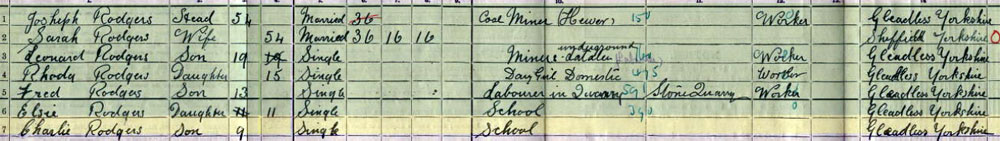 1 Joshiph Rodgers Head 54 Married 36 Coal Miner Hewer 150 Worker Gleadless Yorkshire
2 Sarah Rodgers Wife 54 Married 36 16 16 Sheffield Yorkshire
3 Leonard Rodgers Son 19 19 Single Miner underground Worker Gleadless Yorkshire
4 Rhoda Rodgers Daughter 15 Single Day Girl Domestic Worker Gleadless Yorkshire
5 Fred Rodgers Son 13 Single Labourer in Quarry Stone Quarry Worker Gleadless Yorkshire
6 Elsie Rodgers Daughter 11 11 Single School 390 Gleadless Yorkshire
7 Charlie Rodgers Son 9 Single School Gleadless Yorkshire